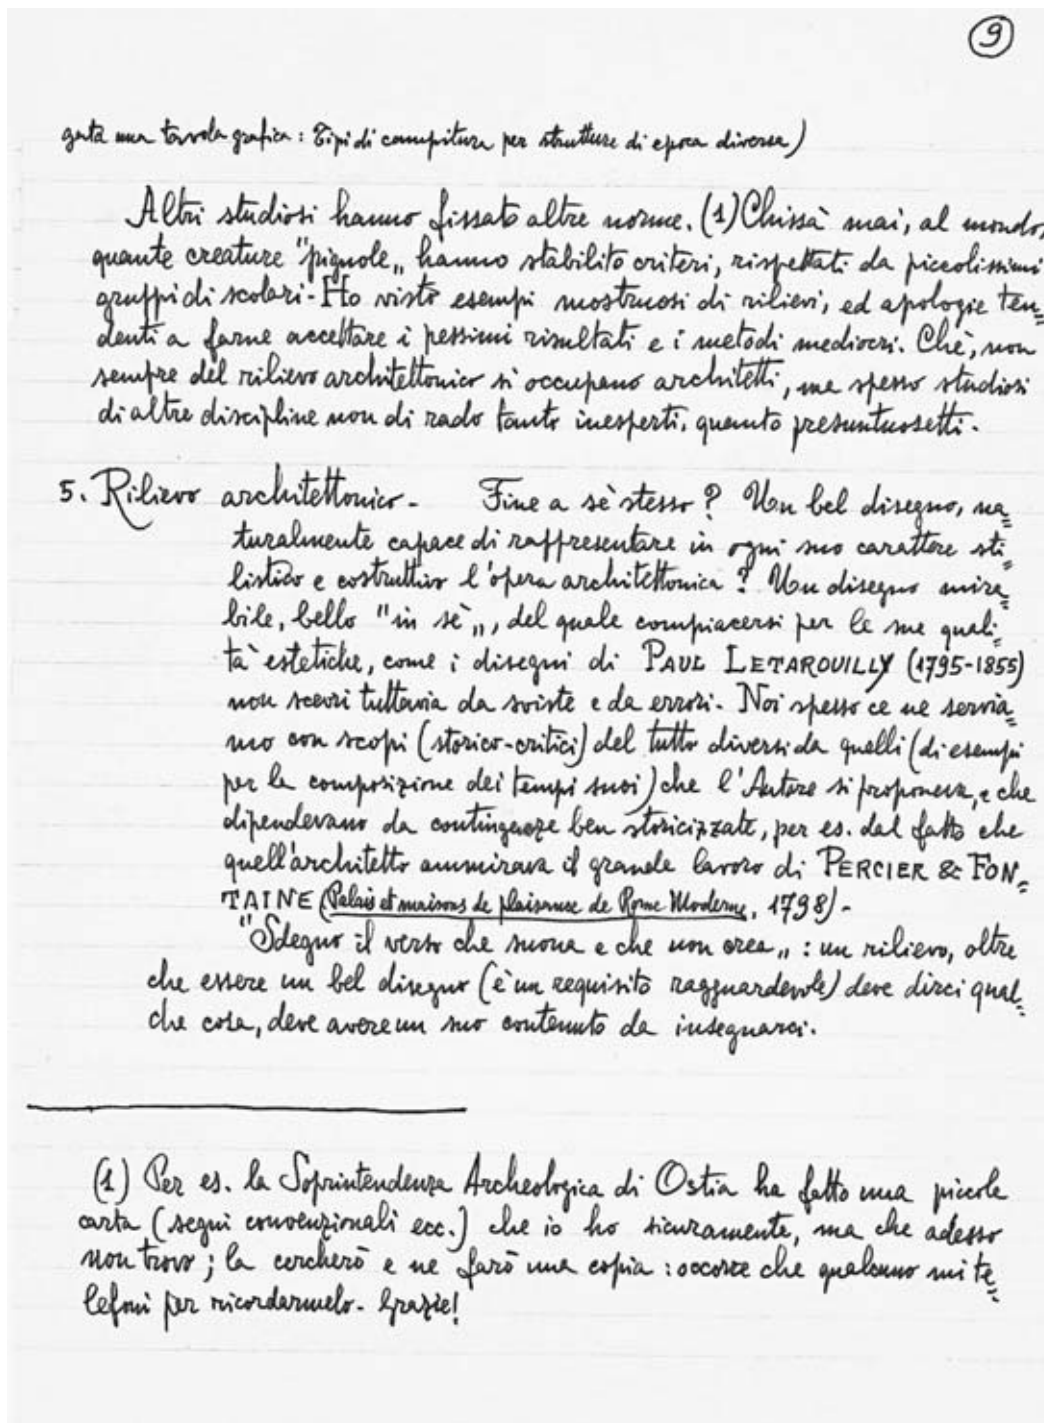 9
gata una tavola grafica: Tipi di campitura per strutture di epoca diversa)
Altri studiosi hanno fissato altre norme. (1) Chissà mai, al mondo,
quante creature "pignole„ hanno stabilito criteri, rispettati da piccolissimi
gruppi di scolari - Ho visto esempi mostruosi di rilievi, ed apologie ten=
denti a farne accettare i pessimi risultati e i metodi mediocri. Chè, non
sempre del rilievo architettonico si occupano architetti, ma spesso studiosi
di altre discipline non di rado tanto inesperti, quanto presuntuosetti.
5. Rilievo architettonico - Fine a sè stesso? Un bel disegno, na=
turalmente capace di raffresentare in ogni suo carattere sti=
listico e costruttivo l'opera architettonica? Un disegno mira=
bile, bello "in sè„, del quale compiacersi per le sue quali=
tà estetiche, come i disegni di PAUL LETAROUILLY (1795-1855)
non scevri tuttavia da sviste e da errori - Noi spesso ce ne servia=
mo con scopi (storico-critici) del tutto diversi da quelli (di esempi
per la composizione dei tempi suoi) che l'Autore si proponeva, e che
dipendevano da contingenze ben storicizzate, per es. dal fatto che
quell'architetto ammirava il grande lavoro di PERCIER & FON=
TAINE (Palais et maisons de plaisance de Rome Moderne, 1798) -
"Sdegno il verso che suona e che non crea„: un rilievo, oltre
che essere un bel disegno (è un requisito ragguardevole) deve dirci qual=
che cosa, deve avere un suo contenuto da insegnarci.
(1) Per es. la Soprintendenza Archeologica di Ostia ha fatto una piccola
carta (segni convenzionali ecc.) che io ho sicuramente, ma che adesso
non trovo; la cercherò e ne farò una copia: occorre che qualcuno mi te=
lefoni per ricordarmelo - Grazie!